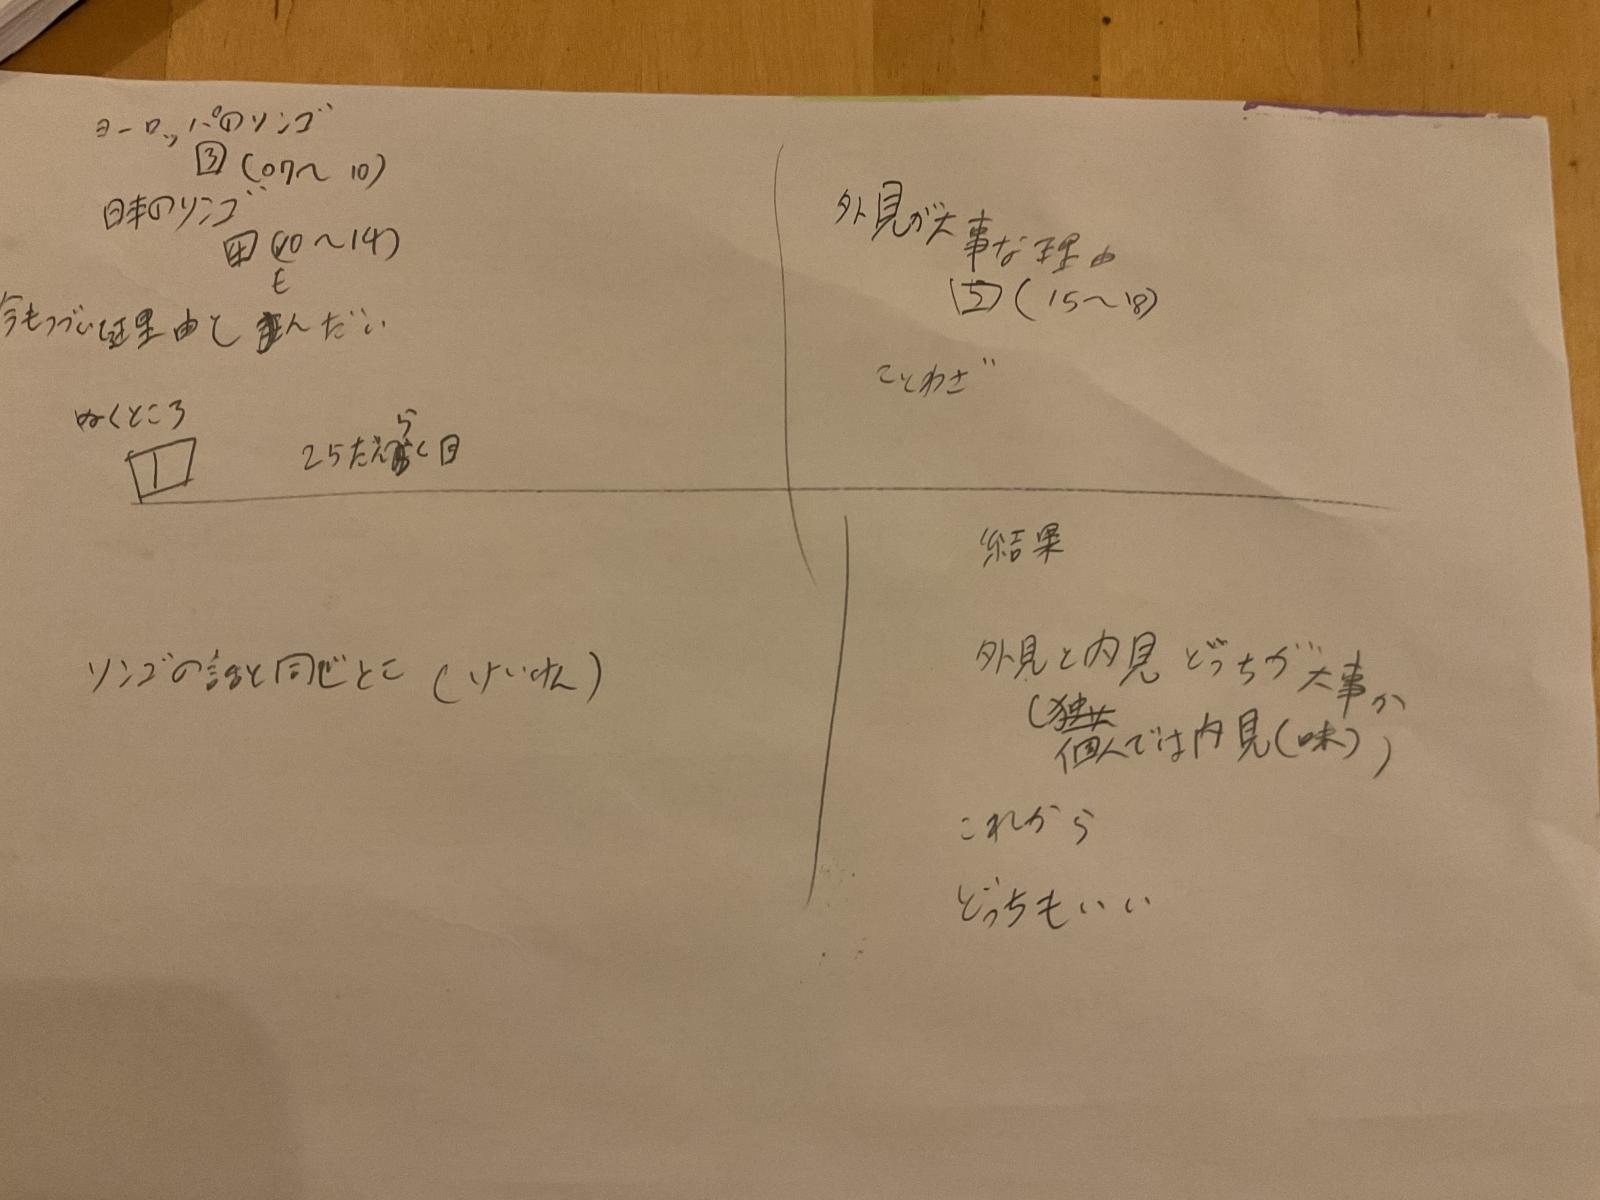 ヨーロッパのリンゴ
3 (07〜10)
日本のリンゴ
4 (10〜14)
E
今もつづい 理由と んだい
ぬくところ
1
ら
25だん く目
外見が大事な理由
5 (15〜18)
ことわざ
リンゴの話と同じとこ (けいけん)
結果
外見と内見 どっちが大事か
(
個人では内見(味))
これから
どっちもいい